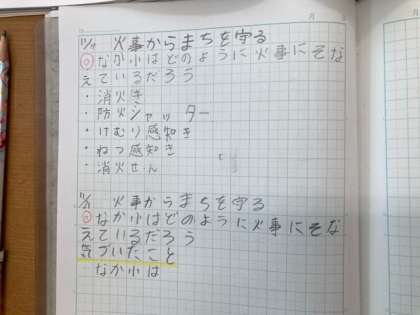 火事からまちを守る
なか小はどのように火事にそな
えているだろう
・消火き
・防火シャッター
・けむり感知き
・ねつ感知き
・消火せん
火事からまちを守る
なか小はどのように火事にそな
えているだろう
気づいたこと
なか小は